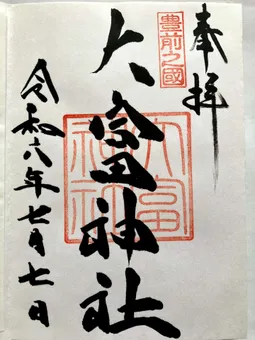 奉拝
豊前之國
大富神社
大富神社
令和六年 月七日